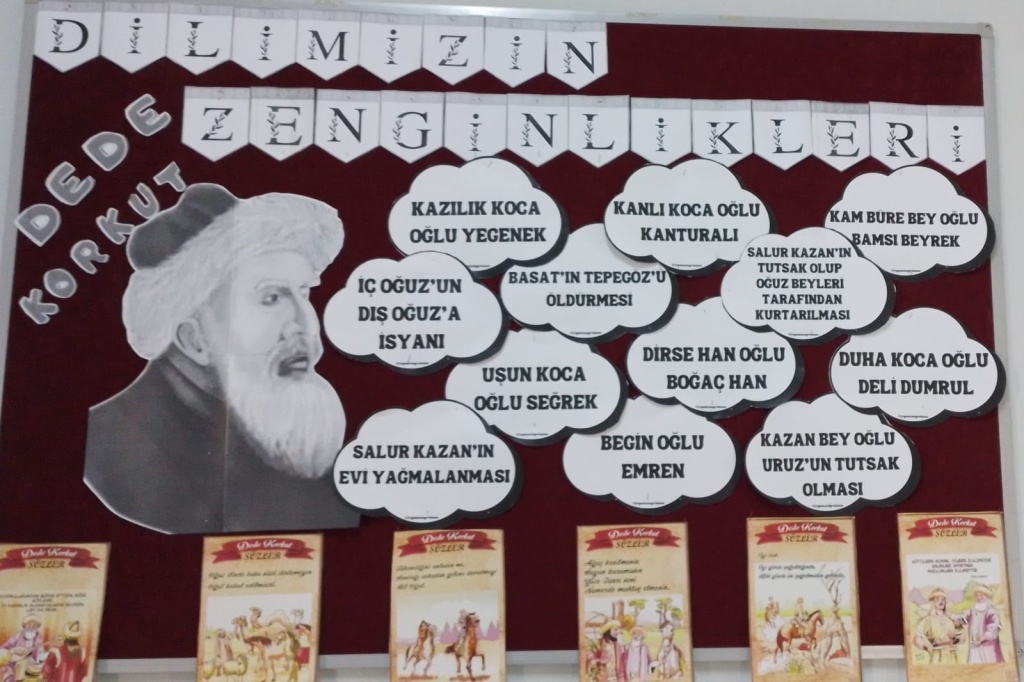 DİLİMİZİN
ZENGİNLİKLERİ
DEDE
KORKUT
KAZILIK KOCA
OĞLU YEGENEK
KANLI KOCA OĞLU
KANTURALI
KAM BÜRE BEY OĞLU
BAMSI BEYREK
İÇ OĞUZ'UN
DIŞ OĞUZ'A
İSYANI
BASAT'IN TEPEGÖZ'Ü
ÖLDÜRMESİ
SALUR KAZAN'IN
TUTSAK OLUP
OĞUZ BEYLERİ
TARAFINDAN
KURTARILMASI
UŞUN KOCA
OĞLU SEĞREK
DİRSE HAN OĞLU
BOĞAÇ HAN
DUHA KOCA OĞLU
DELİ DUMRUL
SALUR KAZAN'IN
EVİ YAĞMALANMASI
BEGİN OĞLU
EMREN
KAZAN BEY OĞLU
URUZ'UN TUTSAK
OLMASI
Dede Korkut
SÖZLER
Dede Korkut
SÖZLER
Dede Korkut
SÖZLER
Dede Korkut
SÖZLER
Dede Korkut
SÖZLER
Dede Korkut
SÖZLER